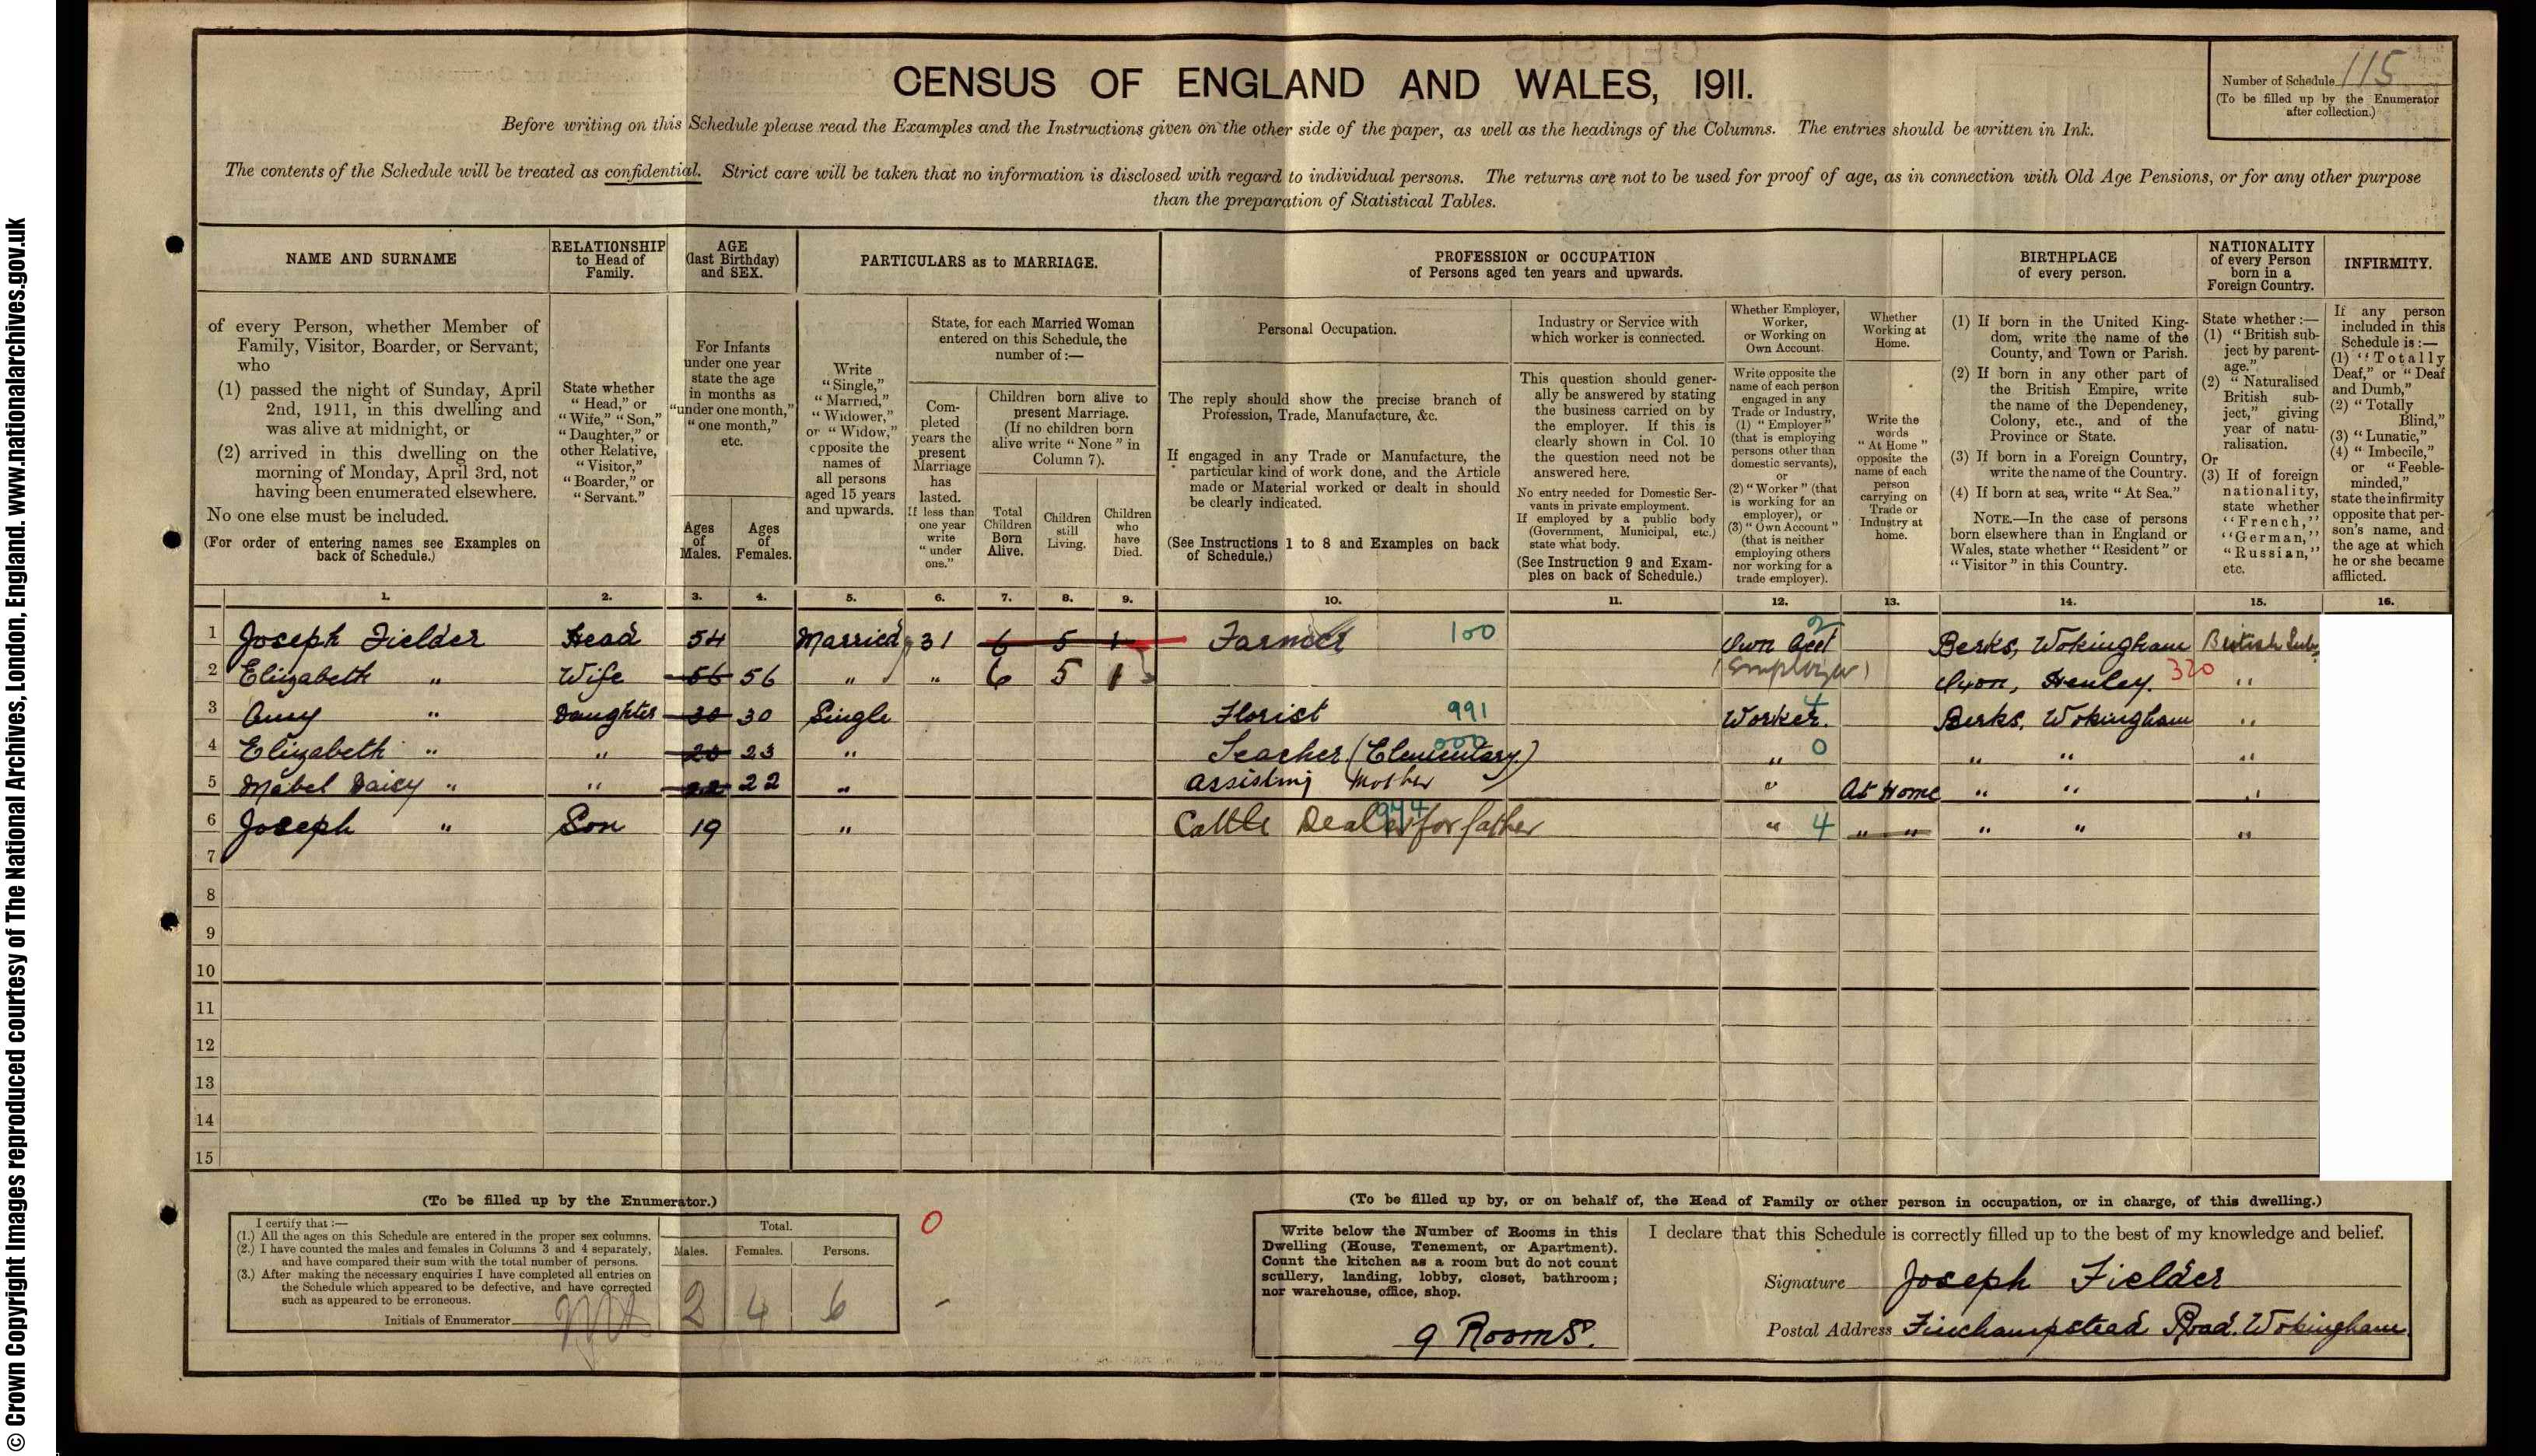 © Crown Copyright Images reproduced courtesy of The National Archives, London, England. www.nationalarchives.gov.uk
CENSUS OF ENGLAND AND WALES, 1911.
Number of Schedule 115
(To be filled up by the Enumerator after collection.)
Before writing on this Schedule please read the Examples and the Instructions given on the other side of the paper, as well as the headings of the Columns. The entries should be written in Ink.
The contents of the Schedule will be treated as confidential. Strict care will be taken that no information is disclosed with regard to individual persons. The returns are not to be used for proof of age, as in connection with Old Age Pensions, or for any other purpose
than the preparation of Statistical Tables.
NAME AND SURNAME
RELATIONSHIP to Head of Family.
AGE (last Birthday) and SEX.
PARTICULARS as to MARRIAGE.
PROFESSION or OCCUPATION of Persons aged ten years and upwards.
BIRTHPLACE of every person.
NATIONALITY of every Person born in a Foreign Country.
INFIRMITY.
of every Person, whether Member of
Family, Visitor, Boarder, or Servant,
who
(1) passed the night of Sunday, April
2nd, 1911, in this dwelling and
was alive at midnight, or
(2) arrived in this dwelling on the
morning of Monday, April 3rd, not
having been enumerated elsewhere.
No one else must be included.
(For order of entering names see Examples on
back of Schedule.)
State whether
"Head," or
"Wife," "Son,"
"Daughter," or
other Relative,
"Visitor,"
"Boarder," or
"Servant."
For Infants
under one year
state the age
in months as
"under one month,"
"one month,"
etc.
Ages of Males.
Ages of Females.
Write
"Single,"
"Married,"
"Widower,"
or "Widow,"
opposite the
names of
all persons
aged 15 years
and upwards.
State, for each Married Woman
entered on this Schedule, the
number of:—
Com-
pleted
years the
present
Marriage
has
lasted.
If less than
one year
write
"under
one."
Children born alive to
present Marriage.
(If no children born
alive write "None" in
Column 7).
Total Children Born Alive.
Children still Living.
Children who have Died.
Personal Occupation.
The reply should show the precise branch of
Profession, Trade, Manufacture, &c.
If engaged in any Trade or Manufacture, the
particular kind of work done, and the Article
made or Material worked or dealt in should
be clearly indicated.
(See Instructions 1 to 8 and Examples on back
of Schedule.)
Industry or Service with
which worker is connected.
This question should gener-
ally be answered by stating
the business carried on by
the employer. If this is
clearly shown in Col. 10
the question need not be
answered here.
No entry needed for Domestic Ser-
vants in private employment.
If employed by a public body
(Government, Municipal, etc.)
state what body.
(See Instruction 9 and Exam-
ples on back of Schedule.)
Whether Employer,
Worker,
or Working on
Own Account.
Write opposite the
name of each person
engaged in any
Trade or Industry,
(1) "Employer"
(that is employing
persons other than
domestic servants),
or
(2) "Worker" (that
is working for an
employer), or
(3) "Own Account"
(that is neither
employing others
nor working for a
trade employer).
Whether
Working at
Home.
Write the
words
"At Home"
opposite the
name of each
person
carrying on
Trade or
Industry at
home.
(1) If born in the United King-
dom, write the name of the
County, and Town or Parish.
(2) If born in any other part of
the British Empire, write
the name of the Dependency,
Colony, etc., and of the
Province or State.
(3) If born in a Foreign Country,
write the name of the Country.
(4) If born at sea, write "At Sea."
NOTE.—In the case of persons
born elsewhere than in England or
Wales, state whether "Resident" or
"Visitor" in this Country.
State whether:—
(1) "British sub-
ject by parent-
age."
(2) "Naturalised
British sub-
ject," giving
year of natu-
ralisation.
Or
(3) If of foreign
nationality,
state whether
"French,"
"German,"
"Russian,"
etc.
If any person
included in this
Schedule is:—
(1) "Totally
Deaf," or "Deaf
and Dumb,"
(2) "Totally
Blind,"
(3) "Lunatic,"
(4) "Imbecile,"
or "Feeble-
minded,"
state the infirmity
opposite that per-
son's name, and
the age at which
he or she became
afflicted.
1. 2. 3. 4. 5. 6. 7. 8. 9. 10. 11. 12. 13. 14. 15. 16.
1 Joseph Fielder Head 54 Married 31 6 5 1 Farmer 100 Own Acct 2 Berks, Wokingham British Sub
2 Elizabeth " Wife 56 56 " " 6 5 1 (Employer) Oxon, Henley. 320 "
3 Amy " Daughter 30 30 Single Florist 991 Worker. 4 Berks. Wokingham "
4 Elizabeth " " 23 " Teacher (Elementary) 000 " 0 " " "
5 Mabel Daisy " " 22 22 " Assisting Mother " At Home " " "
6 Joseph " Son 19 " Cattle Dealer for father " 4 " " " " "
7
8
9
10
11
12
13
14
15
(To be filled up by the Enumerator.)
I certify that:—
(1.) All the ages on this Schedule are entered in the proper sex columns.
(2.) I have counted the males and females in Columns 3 and 4 separately,
and have compared their sum with the total number of persons.
(3.) After making the necessary enquiries I have completed all entries on
the Schedule which appeared to be defective, and have corrected
such as appeared to be erroneous.
Initials of Enumerator
Total.
Males. Females. Persons.
2 4 6
0
(To be filled up by, or on behalf of, the Head of Family or other person in occupation, or in charge, of this dwelling.)
Write below the Number of Rooms in this
Dwelling (House, Tenement, or Apartment).
Count the kitchen as a room but do not count
scullery, landing, lobby, closet, bathroom;
nor warehouse, office, shop.
9 Rooms.
I declare that this Schedule is correctly filled up to the best of my knowledge and belief.
Signature Joseph Fielder
Postal Address Finchampstead Road. Wokingham